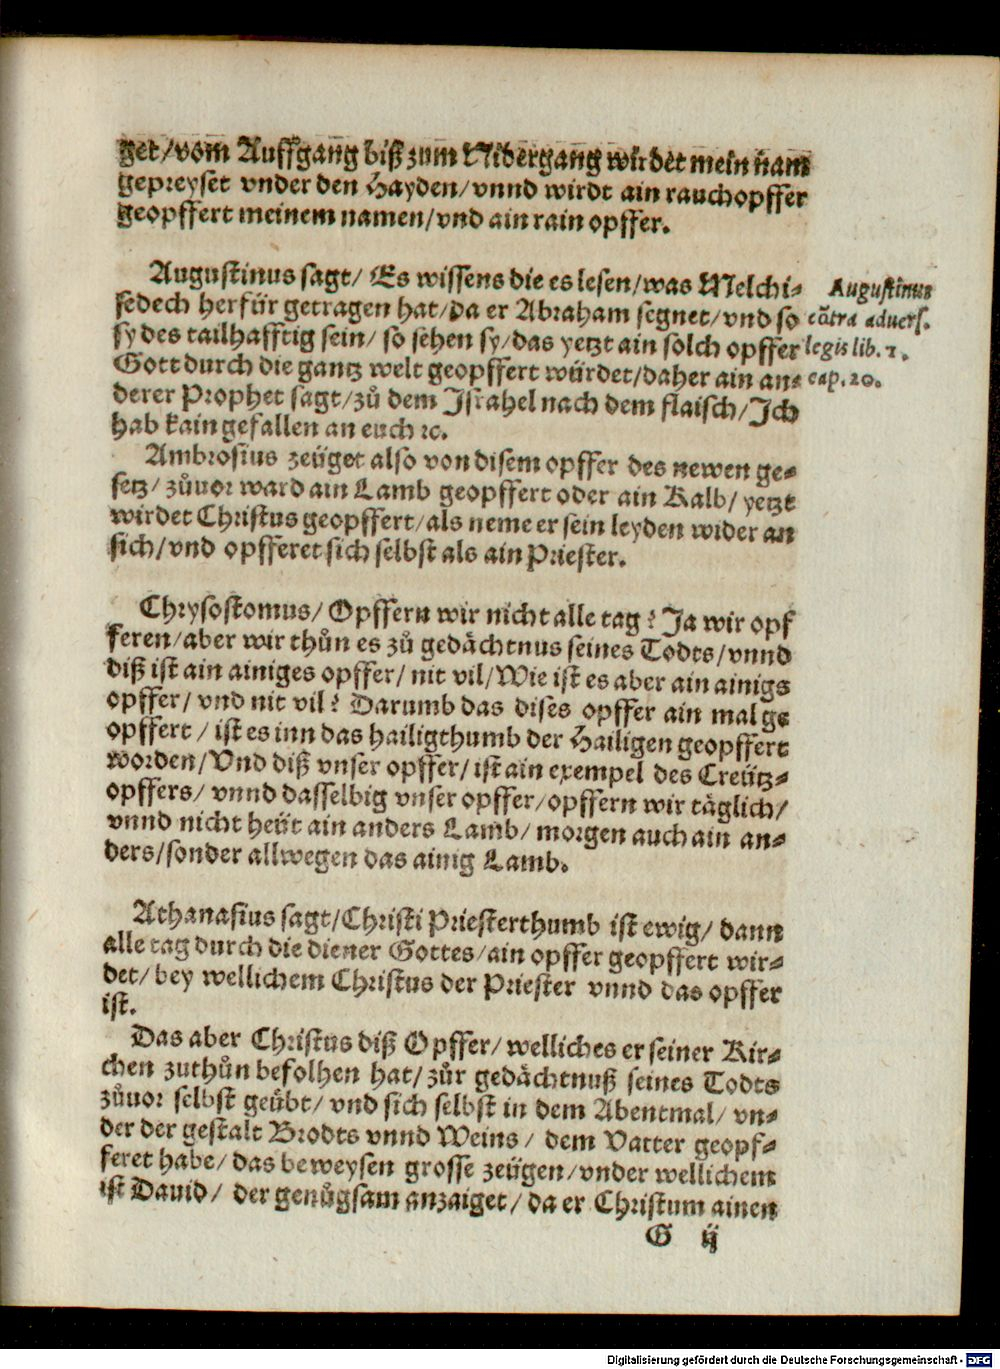 get/vom Auffgang biß zum Nidergang wirdet mein nam
gepreyset vnder den Hayden/vnnd wirdt ain rauchopffer
geopffert meinem namen/vnd ain rain opffer.
Augustinus sagt/ Es wissens die es lesen/was Melchi-
sedech herfür getragen hat/da er Abraham segnet/vnd so
sy des tailhafftig sein/ so sehen sy/das yetzt ain solch opffer
Gott durch die gantz welt geopffert würdet/daher ain an-
derer Prophet sagt/zů dem Israhel nach dem flaisch/Ich
hab kain gefallen an euch ꝛc.
Augustinus
cõtra aduers.
legis lib. 1.
cap. 20.
Ambrosius zeüget also von disem opffer des newen ge-
setz/ zůuor ward ain Lamb geopffert oder ain Kalb/ yetzt
wirdet Christus geopffert/als neme er sein leyden wider an
sich/vnd opfferet sich selbst als ain Priester.
Chrysostomus/ Opffern wir nicht alle tag? Ja wir opf
feren/aber wir thůn es zů gedächtnus seines Todts/vnnd
diß ist ain ainiges opffer/ nit vil/Wie ist es aber ain ainigs
opffer/ vnd nit vil? Darumb das dises opffer ain mal ge
opffert / ist es inn das hailigthumb der Hailigen geopffert
worden/Vnd diß vnser opffer/ ist ain exempel des Creütz-
opffers/ vnnd dasselbig vnser opffer/opffern wir täglich/
vnnd nicht heüt ain anders Lamb/ morgen auch ain an-
ders/sonder allwegen das ainig Lamb.
Athanasius sagt/Christi Priesterthumb ist ewig/ dann
alle tag durch die diener Gottes/ain opffer geopffert wir-
det/ bey wellichem Christus der Priester vnnd das opffer
ist.
Das aber Christus diß Opffer/ welliches er seiner Kir-
chen zuthůn befolhen hat/zůr gedächtnuß seines Todts
zůuor selbst geübt/ vnd sich selbst in dem Abentmal/ vn-
der der gestalt Brodts vnnd Weins / dem Vatter geopf-
feret habe/das beweysen grosse zeügen/vnder wellichem
ist Dauid/ der genůgsam anzaiget/da er Christum ainen
G ij
Digitalisierung gefördert durch die Deutsche Forschungsgemeinschaft - DFG